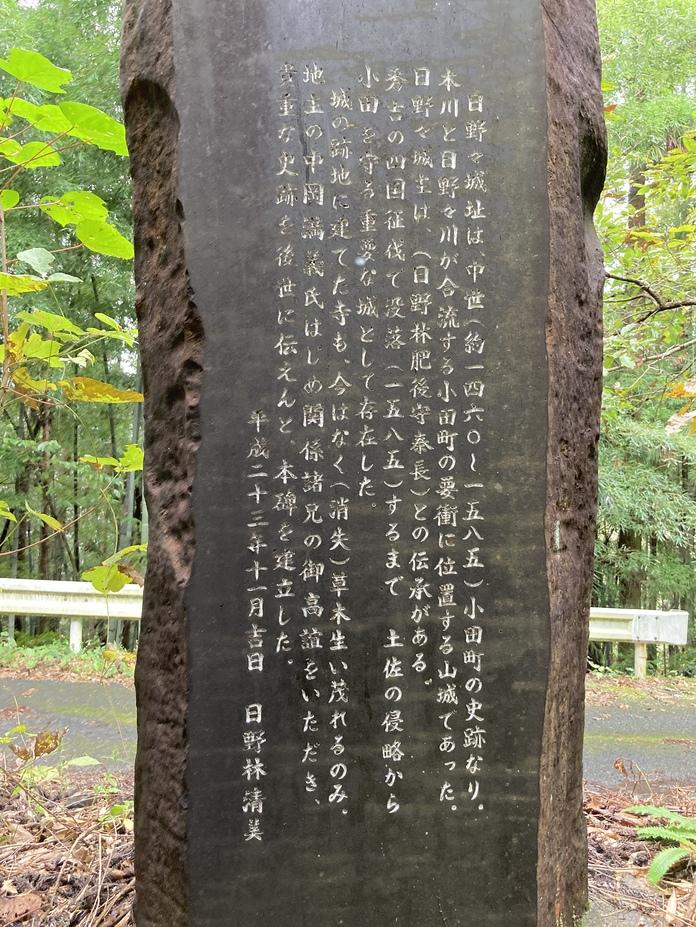 日野々城址は、中世（約一四六〇〜一五八五）小田町の史跡なり。
本川と日野々川が合流する小田町の要衝に位置する山城であった。
日野々城主は、（日野林肥後守泰長）との伝承がある。
秀吉の四国征伐で没落（一五八五）するまで 土佐の侵略から
小田を守る重要な城として存在した。
城の跡地に建てた寺も、今はなく（消失）草木生い茂れるのみ。
地主の中岡満義氏はじめ関係諸兄の御高誼をいただき、
貴重な史跡を後世に伝えんと 本碑を建立した。
平成二十三年十一月吉日 日野林清美